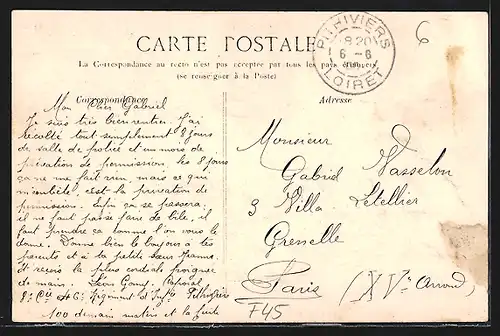 CARTE POSTALE
La Correspondance au recto n'est pas acceptée par tous les pays étrangers
(se renseigner à la Poste)
PITHIVIERS
8 20
6 - 6
LOIRET
6
Correspondance
Adresse
Mon Cher Gabriel
Je suis très bien rentré. J'ai
récolté tout simplement 8 jours
de salle de police et un mois de
privation de permission. Les 8 jours
ça ne me fait rien, mais ce qui
m'embête, c'est la privation de
permission. Enfin ça se passera,
il ne faut pas se faire de bile, il
faut prendre ça comme l'on vous le
donne. Donne bien le bonjour à tes
parents et à ta petite sœur Jeanne.
Et reçois la plus cordiale poignée
de main. Caporal
8e Cie Régiment d'Infie Pithiviers
100 demain matin et la fuite
Monsieur
Gabriel Vasselon
3 Villa Letellier
Grenelle
Paris (XVe Arrond)
F45